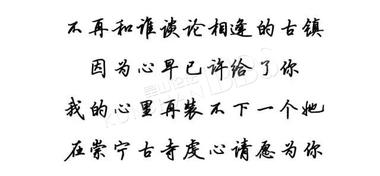 不再和谁谈论相逢的古镇
因为心早已许给了你
我的心里再装不下一个她
在崇宁古寺虔心请愿为你